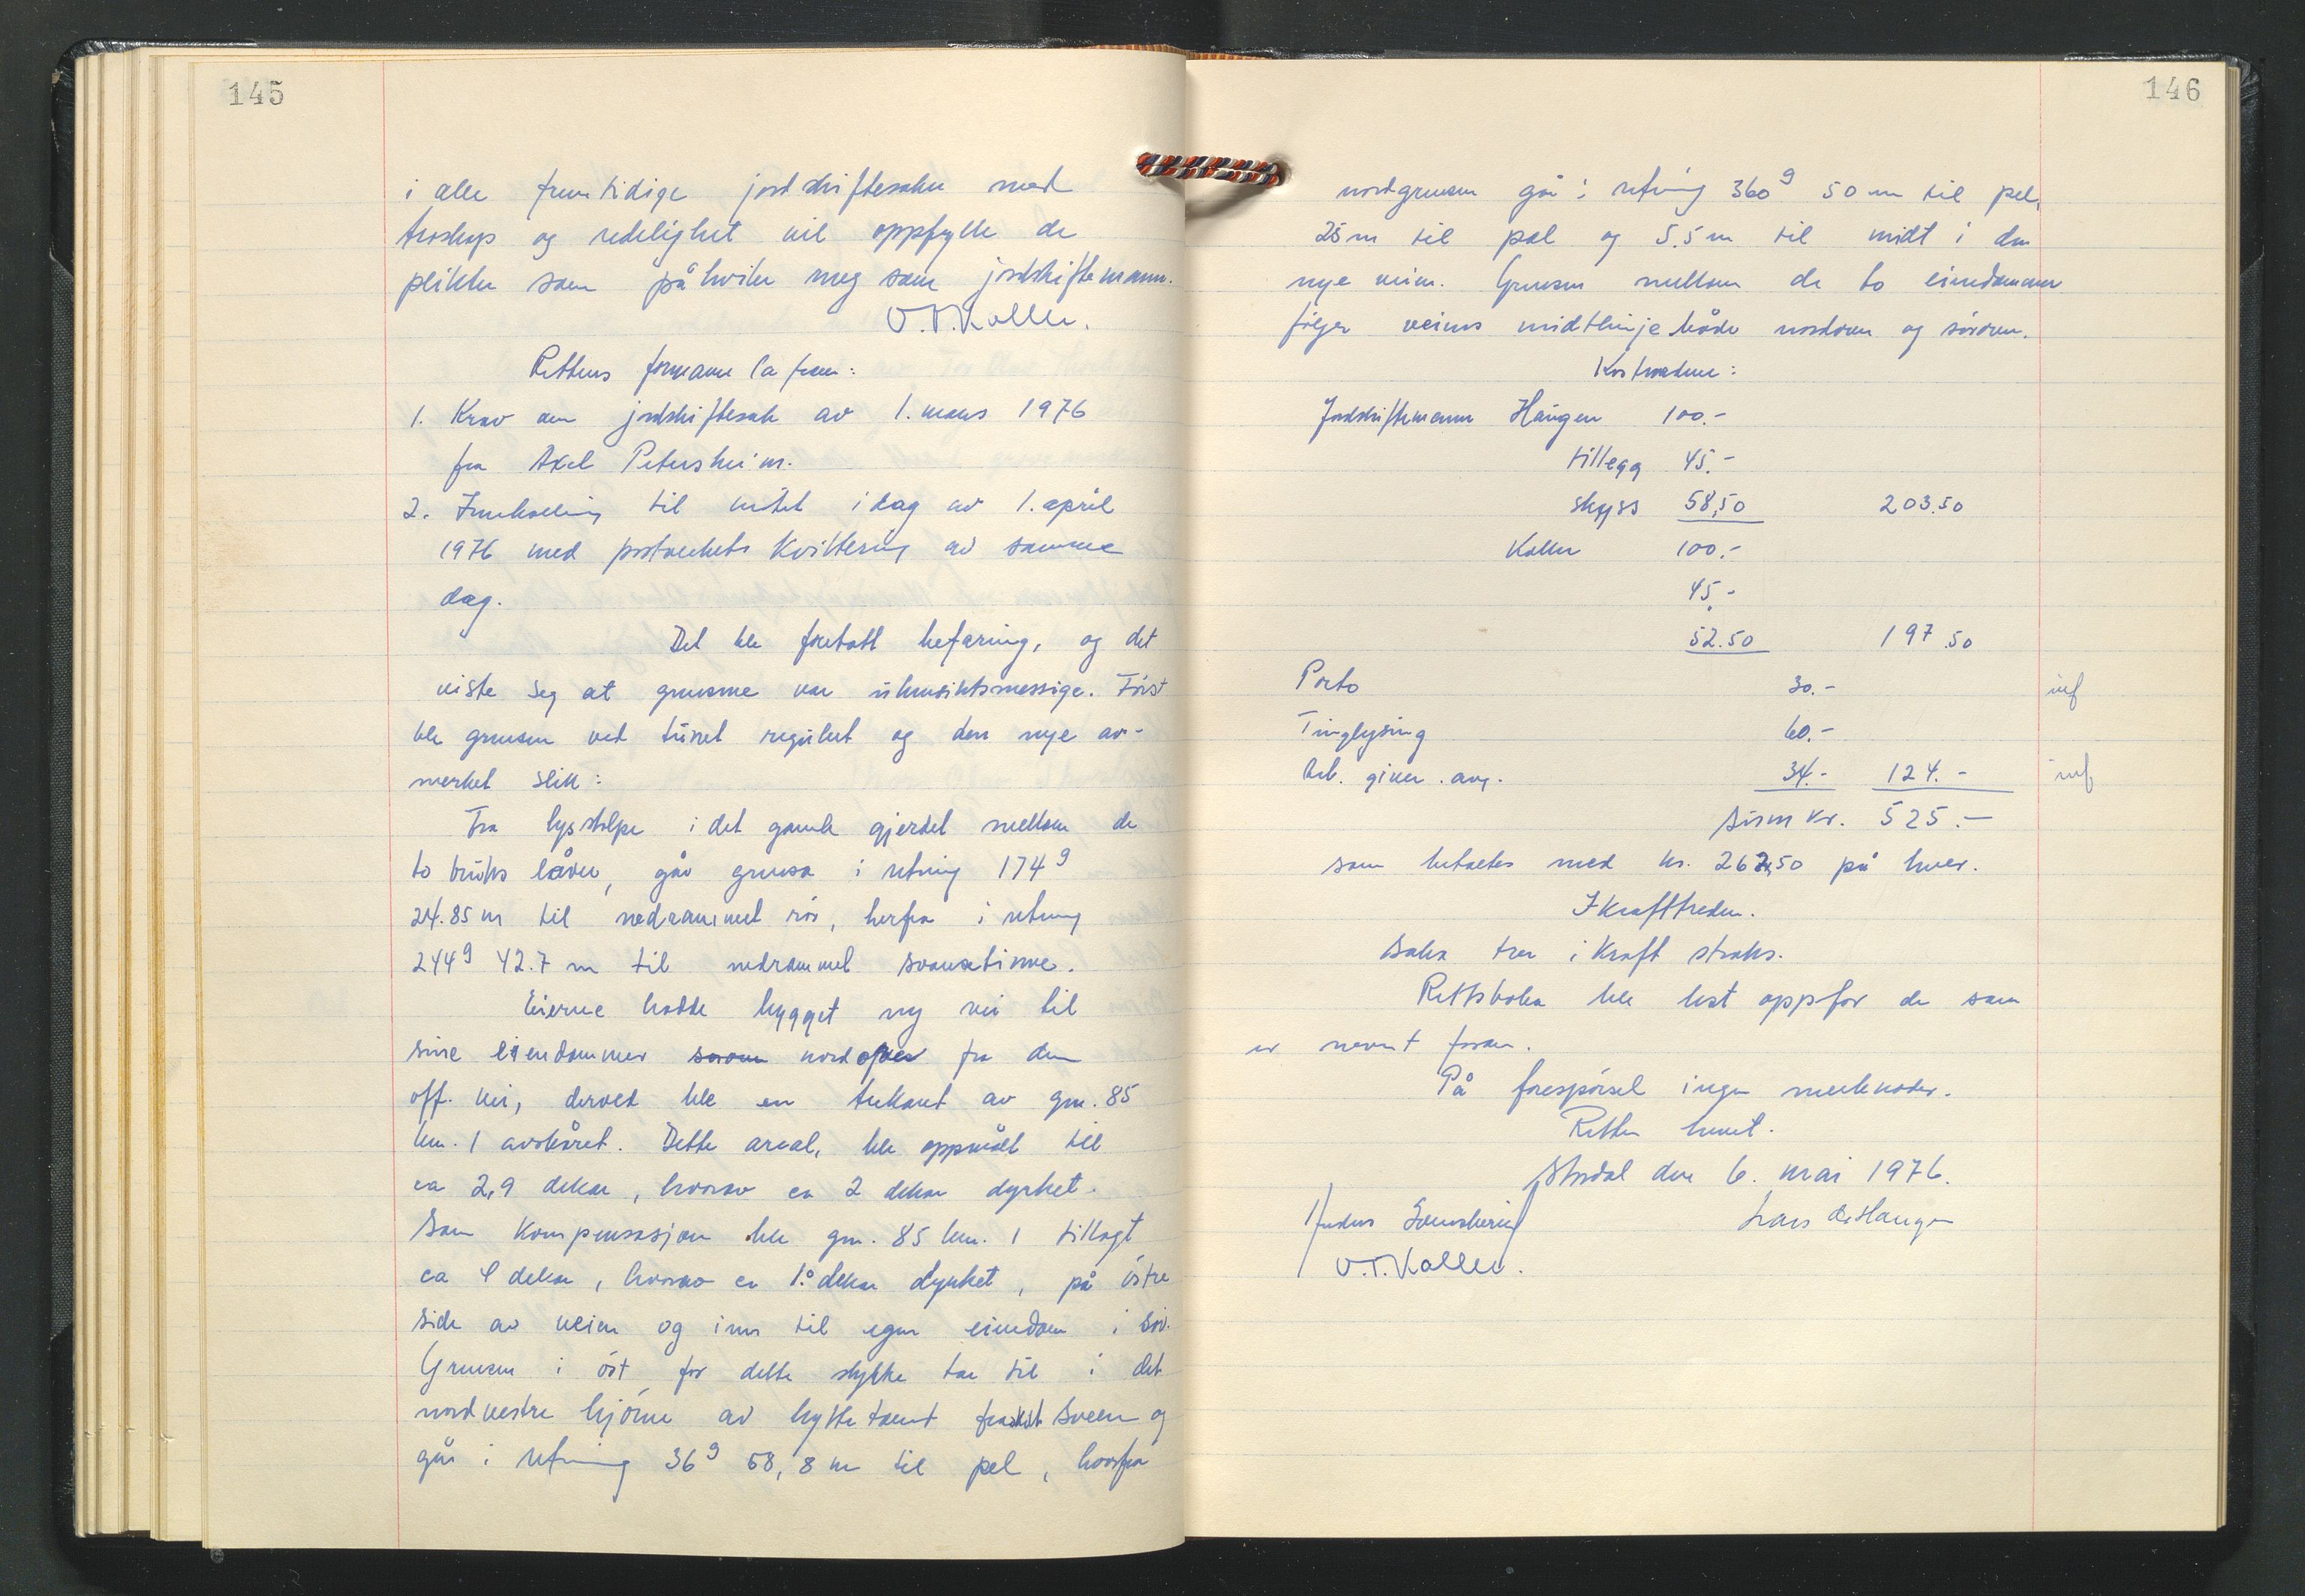 145
i alle fremtidige jordskiftesaker med
troskap og redelighet vil oppfylle de
plikter som påhviler meg som jordskiftemann.
O.T. Koller.
Rettens formann la fram:
1. Krav om jordskiftesak av 1. mars 1976
fra Axel Petersheim.
2. Innkalling til møtet idag av 1. april
1976 med postverkets kvittering av samme
dag.
Det ble foretatt befaring, og det
viste seg at grensene var uhensiktsmessige. Først
ble grensen ved tunet regulert og den nye av-
merket slik:
Fra lysstolpe i det gamle gjerdet mellom de
to bruks låver, går grensa i retning 174g
24.85 m til nedrammet rør, herfra i retning
244g 42.7 m til nedrammet
Eierne hadde bygget ny vei til
sine eiendommer nordover fra den
off. vei, derved ble en trekant av gnr. 85
bnr. 1 avskåret. Dette areal, ble oppmålt til
ca 2,9 dekar, hvorav ca 2 dekar dyrket.
Som kompensasjon ble gnr. 85 bnr. 1 tillagt
ca 4 dekar, hvorav ca dekar dyrket, på østre
side av veien og inn til egen eiendom i sør.
Grensen i øst for dette stykke tar til i det
nordvestre hjørne av hyttetomt Sveen og
går i retning 36g 58,8 m til pel, hvorfra
146
nordgrensen går i retning 360g 50 m til pel,
25 m til pæl og 5.5 m til midt i den
nye veien. Grensen mellom de to eiendommer
følger veiens midtlinje både nordover og sørover.
Kostnadene:
Jordskiftemann Haugen 100.-
tillegg 45.-
skyss 58,50 203.50
Koller 100.-
45.-
52.50 197.50
Porto 30.-
Tinglysing 60.-
Arb. giver. avg. 34.- 124.-
Sum kr. 525.-
som betales med kr. 262,50 på hver.
Ikrafttreden.
Saka trer i kraft straks.
Rettsboka ble lest opp for de som
er nevnt foran.
På forespørsel ingen merknader.
Retten hevet.
Stordal den 6. mai 1976.
Lars Haugen
O.T. Koller.